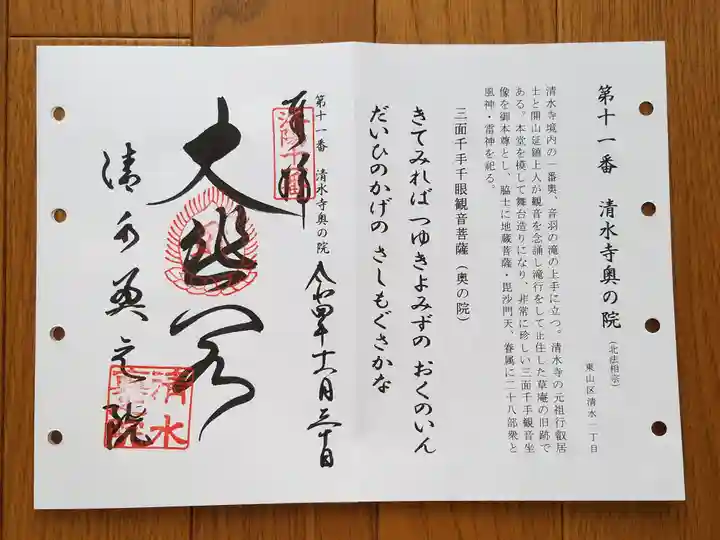 第十一番 清水寺奥の院(北法相宗)
東山区清水一丁目
清水寺境内の一番奥、音羽の滝の上手に立つ。清水寺の元祖行叡居
士と開山延鎮上人が観音を念誦し滝行をして止住した草庵の旧跡で
ある。本堂を模して舞台造りになり、非常に珍しい三面千手観音坐
像を御本尊とし、脇士に地蔵菩薩・毘沙門天、眷属に二十八部衆と
風神・雷神を祀る。
三面千手千眼観音菩薩(奥の院)
きてみれば つゆきよみずの おくのいん
だいひのかげの さしもぐさかな
第十一番 清水寺奥の院
令和四年十一月三十日
奉拝
大悲閣
清水奥之院
清水